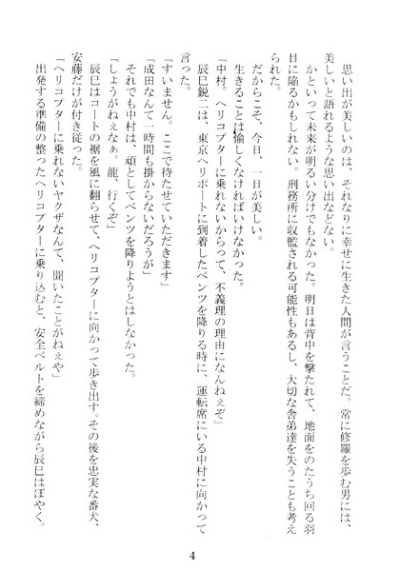 思い出が美しいのは、それなりに幸せに生きた人間が言うことだ。常に修羅を歩む男には、
美しいと語れるような思い出などない。
かといって未来が明るい分けでもなかった。明日は背中を撃たれて、地面をのたうち回る羽
目に陥るかもしれない。刑務所に収監される可能性もあるし、大切な舎弟達を失うことも考え
られた。
だからこそ、今日、一日が美しい。
生きることは愉しくなければいけなかった。
「中村。ヘリコプターに乗れないからって、不義理の理由になんねぇぞ」
辰巳鋭二は、東京ヘリポートに到着したベンツを降りる時に、運転席にいる中村に向かって
言った。
「すいません。ここで待たせていただきます」
「成田なんて一時間も掛からないだろうが」
それでも中村は、頑としてベンツを降りようとはしなかった。
「しょうがねぇなぁ。龍、行くぞ」
辰巳はコートの裾を風に翻らせて、ヘリコプターに向かって歩き出す。その後を忠実な番犬、
安藤だけが付き従った。
「ヘリコプターに乗れないヤクザなんて、聞いたことがねぇや」
出発する準備の整ったヘリコプターに乗り込むと、安全ベルトを締めながら辰巳はぼやく。
4